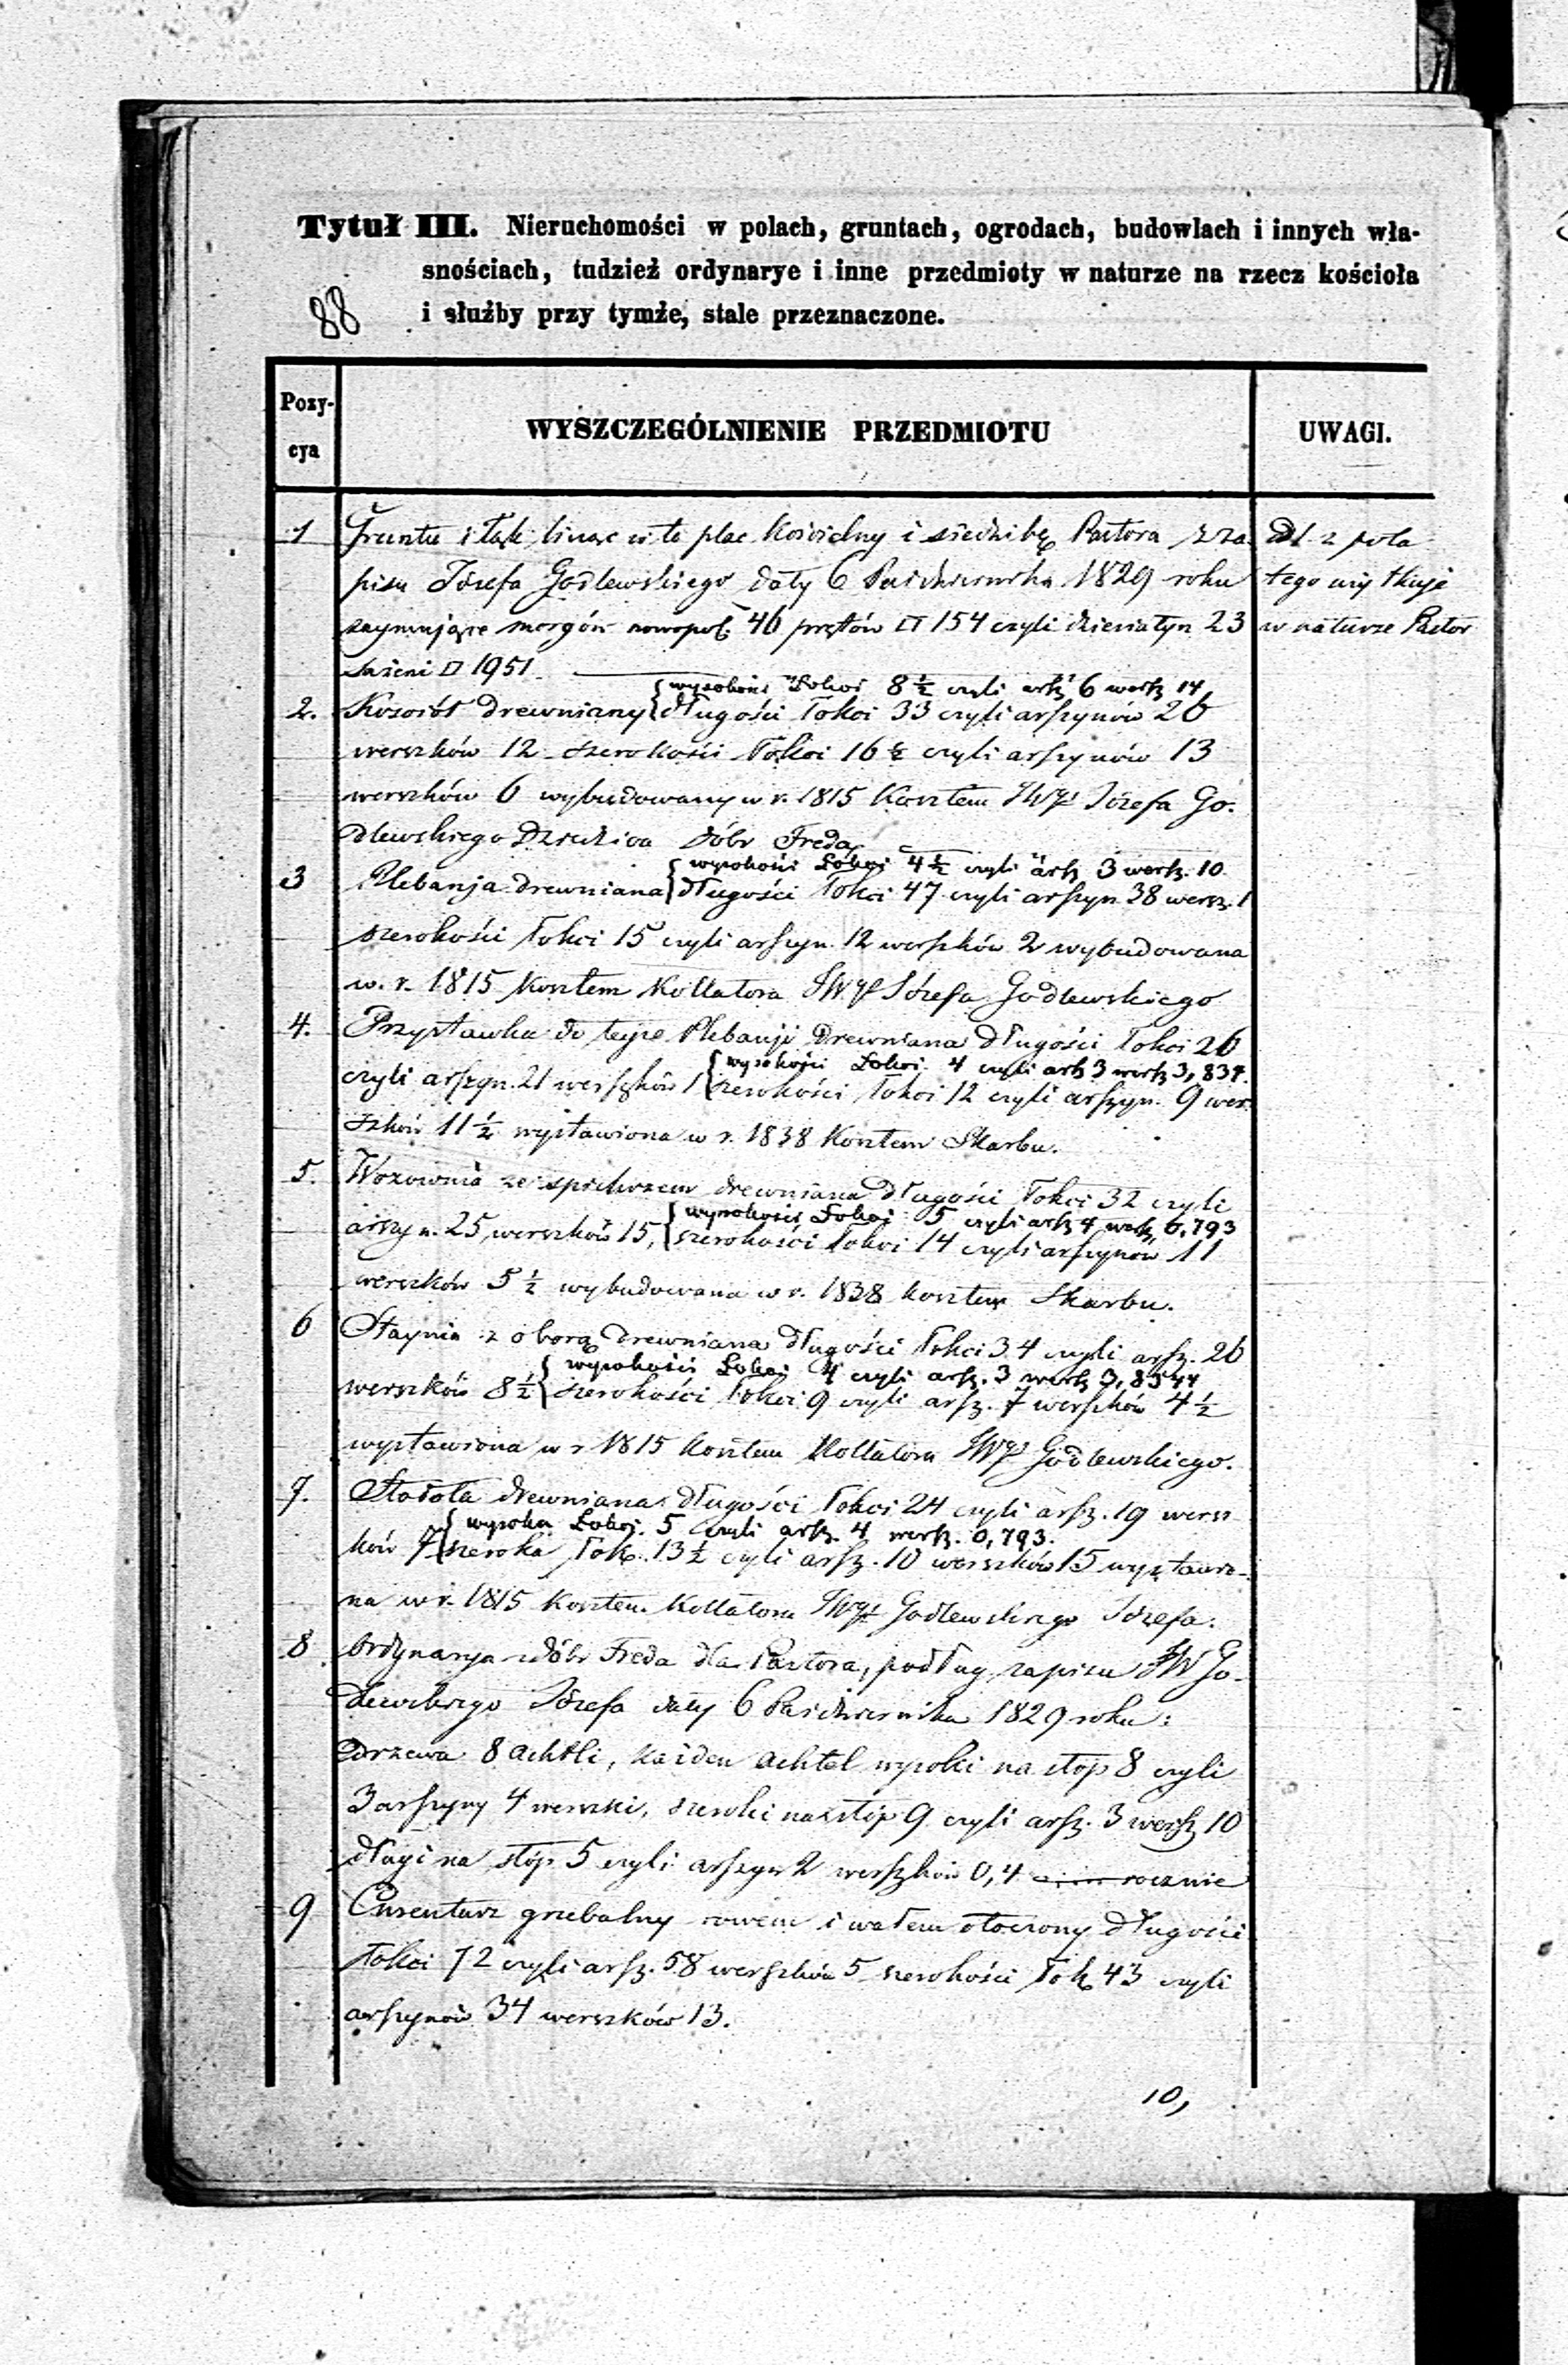 Tytuł III. Nieruchomości w polach, gruntach, ogrodach, budowlach i innych wła-
snościach, tudzież ordynarye i inne przedmioty w naturze na rzecz kościoła
i służby przy tymże, stale przeznaczone.
88
Pozy-
cya
WYSZCZEGÓLNIENIE PRZEDMIOTU
UWAGI.
1 Gruntu i łąk licząc w to plac kościelny i siedzibę Pastora z za
pisu Józefa Godlewskiego daty 6 Października 1829 roku
zaymujące morgów nowopol. 46 prętów □ 154 czyli dziesiatyn 23
sażeni □ 1951.
z pola
tego użytkuje
w naturze Pastor
{wysokości Łokci 8 ½ czyli arsz 6 wersz 14,
2. Kościół drewniany {długości łokci 33 czyli arszynów 26
werszków 12 szerokości łokci 16 ½ czyli arszynów 13
werszków 6 wybudowany w r. 1815 kosztem JWgo Józefa Go-
dlewskiego Dziedzica dóbr Freda,
{wysokości Łokci 4 ½ czyli arsz 3 wersz. 10
3 Plebanja drewniana {długości łokci 47 czyli arszyn 38 wersz. 1
szerokości łokci 15 czyli arszyn. 12 werszków 2 wybudowana
w. r. 1815 kosztem Kollatora JWgo Józefa Godlewskiego
4. Przystawka do tejże Plebanji drewniana długości łokci 26
{wysokości Łokci. 4 czyli arsz 3 wersz 3,834.
czyli arszyn. 21 werszków 1 {szerokości łokci 12 czyli arszyn. 9 wer
szków 11 ½ wystawiona w r. 1838 kosztem Skarbu.
5. Wozownia ze spichrzem drewniana długości łokci 32 czyli
{wysokości Łokci 5 czyli arsz 4 wersz 0,793
arszyn. 25, werszków 15, {szerokości łokci 14 czyli arszynów 11
werszków 5 ½ wybudowana w r. 1838 kosztem Skarbu.
6 Staynia z oborą drewniana długości łokci 34 czyli arsz. 26
{wysokości Łokci 4 czyli arsz. 3 wersz 3,8344
werszków 8 ½ {szerokości łokci 9 czyli arsz. 7 werszków 4 ½
wystawiona w r 1815 kosztem Kollatora JWgo Godlewskiego.
7. Stodoła drewniana długości łokci 24 czyli arsz. 19 wersz
{wysoka Łokci. 5 czyli arsz. 4 wersz. 0,793.
ków 7 {szeroka łok. 13 ½ czyli arsz. 10 werszków 15 wystawio-
na w r. 1815 kosztem Kollatora JWgo Godlewskiego Józefa.
8 Ordynarya z dóbr Freda dla Pastora, podług zapisu JW Go-
dlewskiego Józefa daty 6 Października 1829 roku:
drzewa 8 achtli, każden achtel wysoki na stóp 8 czyli
3 arszyny 4 werszki, szeroki na stóp 9 czyli arsz. 3 wersz 10
długi na stóp 5 czyli arszyn 2 werszków 0,4 rocznie
9 Cmentarz grzebalny rowem i wałem otoczony długości
łokci 72 czyli arsz. 58 werszków 5 szerokości łok 43 czyli
arszynów 34 werszków 13.
10,